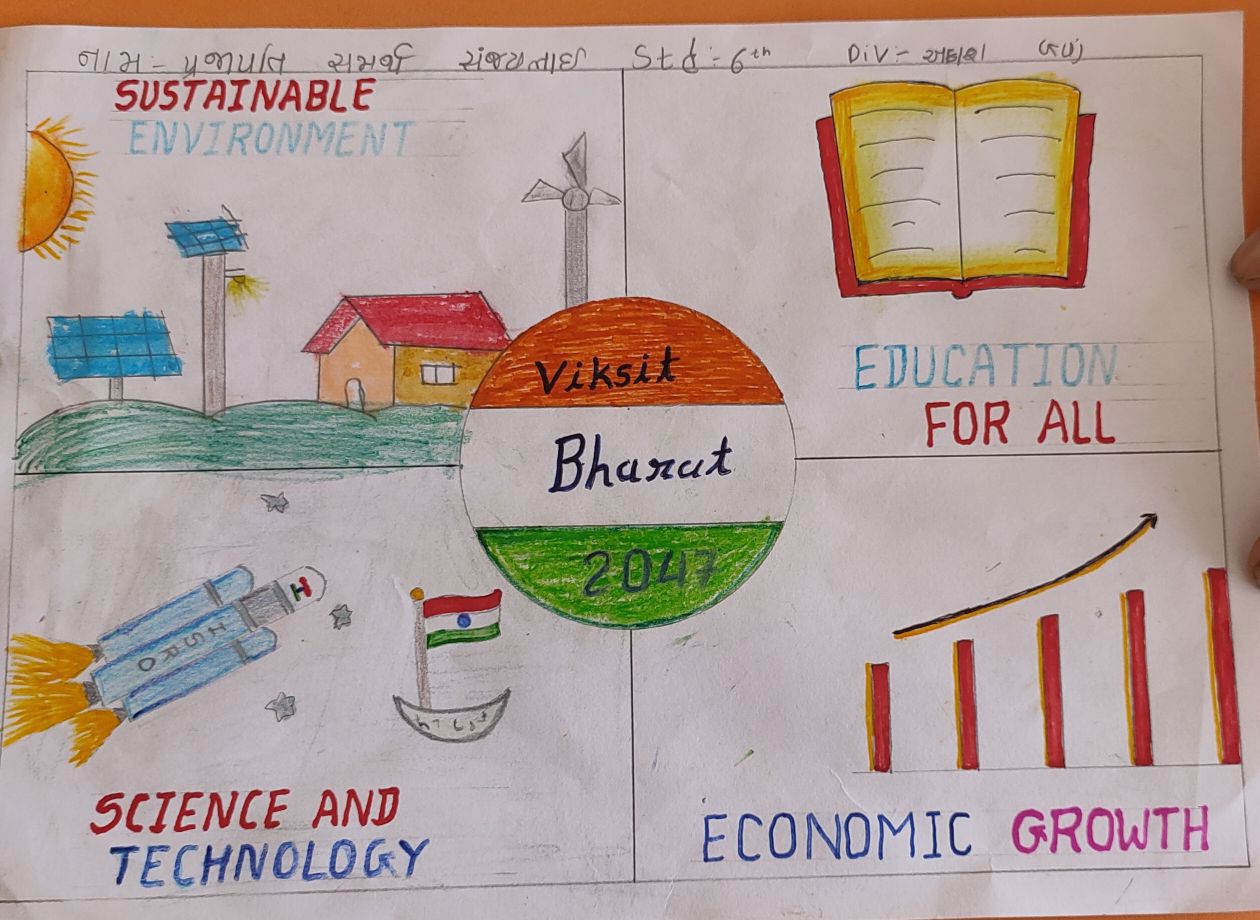 નામ:- પ્રજાપતિ સમર્થ સંજયભાઈ Std :- 6th DiV :- આકાશ (ગુ)
SUSTAINABLE
ENVIRONMENT
EDUCATION
FOR ALL
Viksit
Bharat
2047
ISRO
SCIENCE AND
TECHNOLOGY
ECONOMIC GROWTH